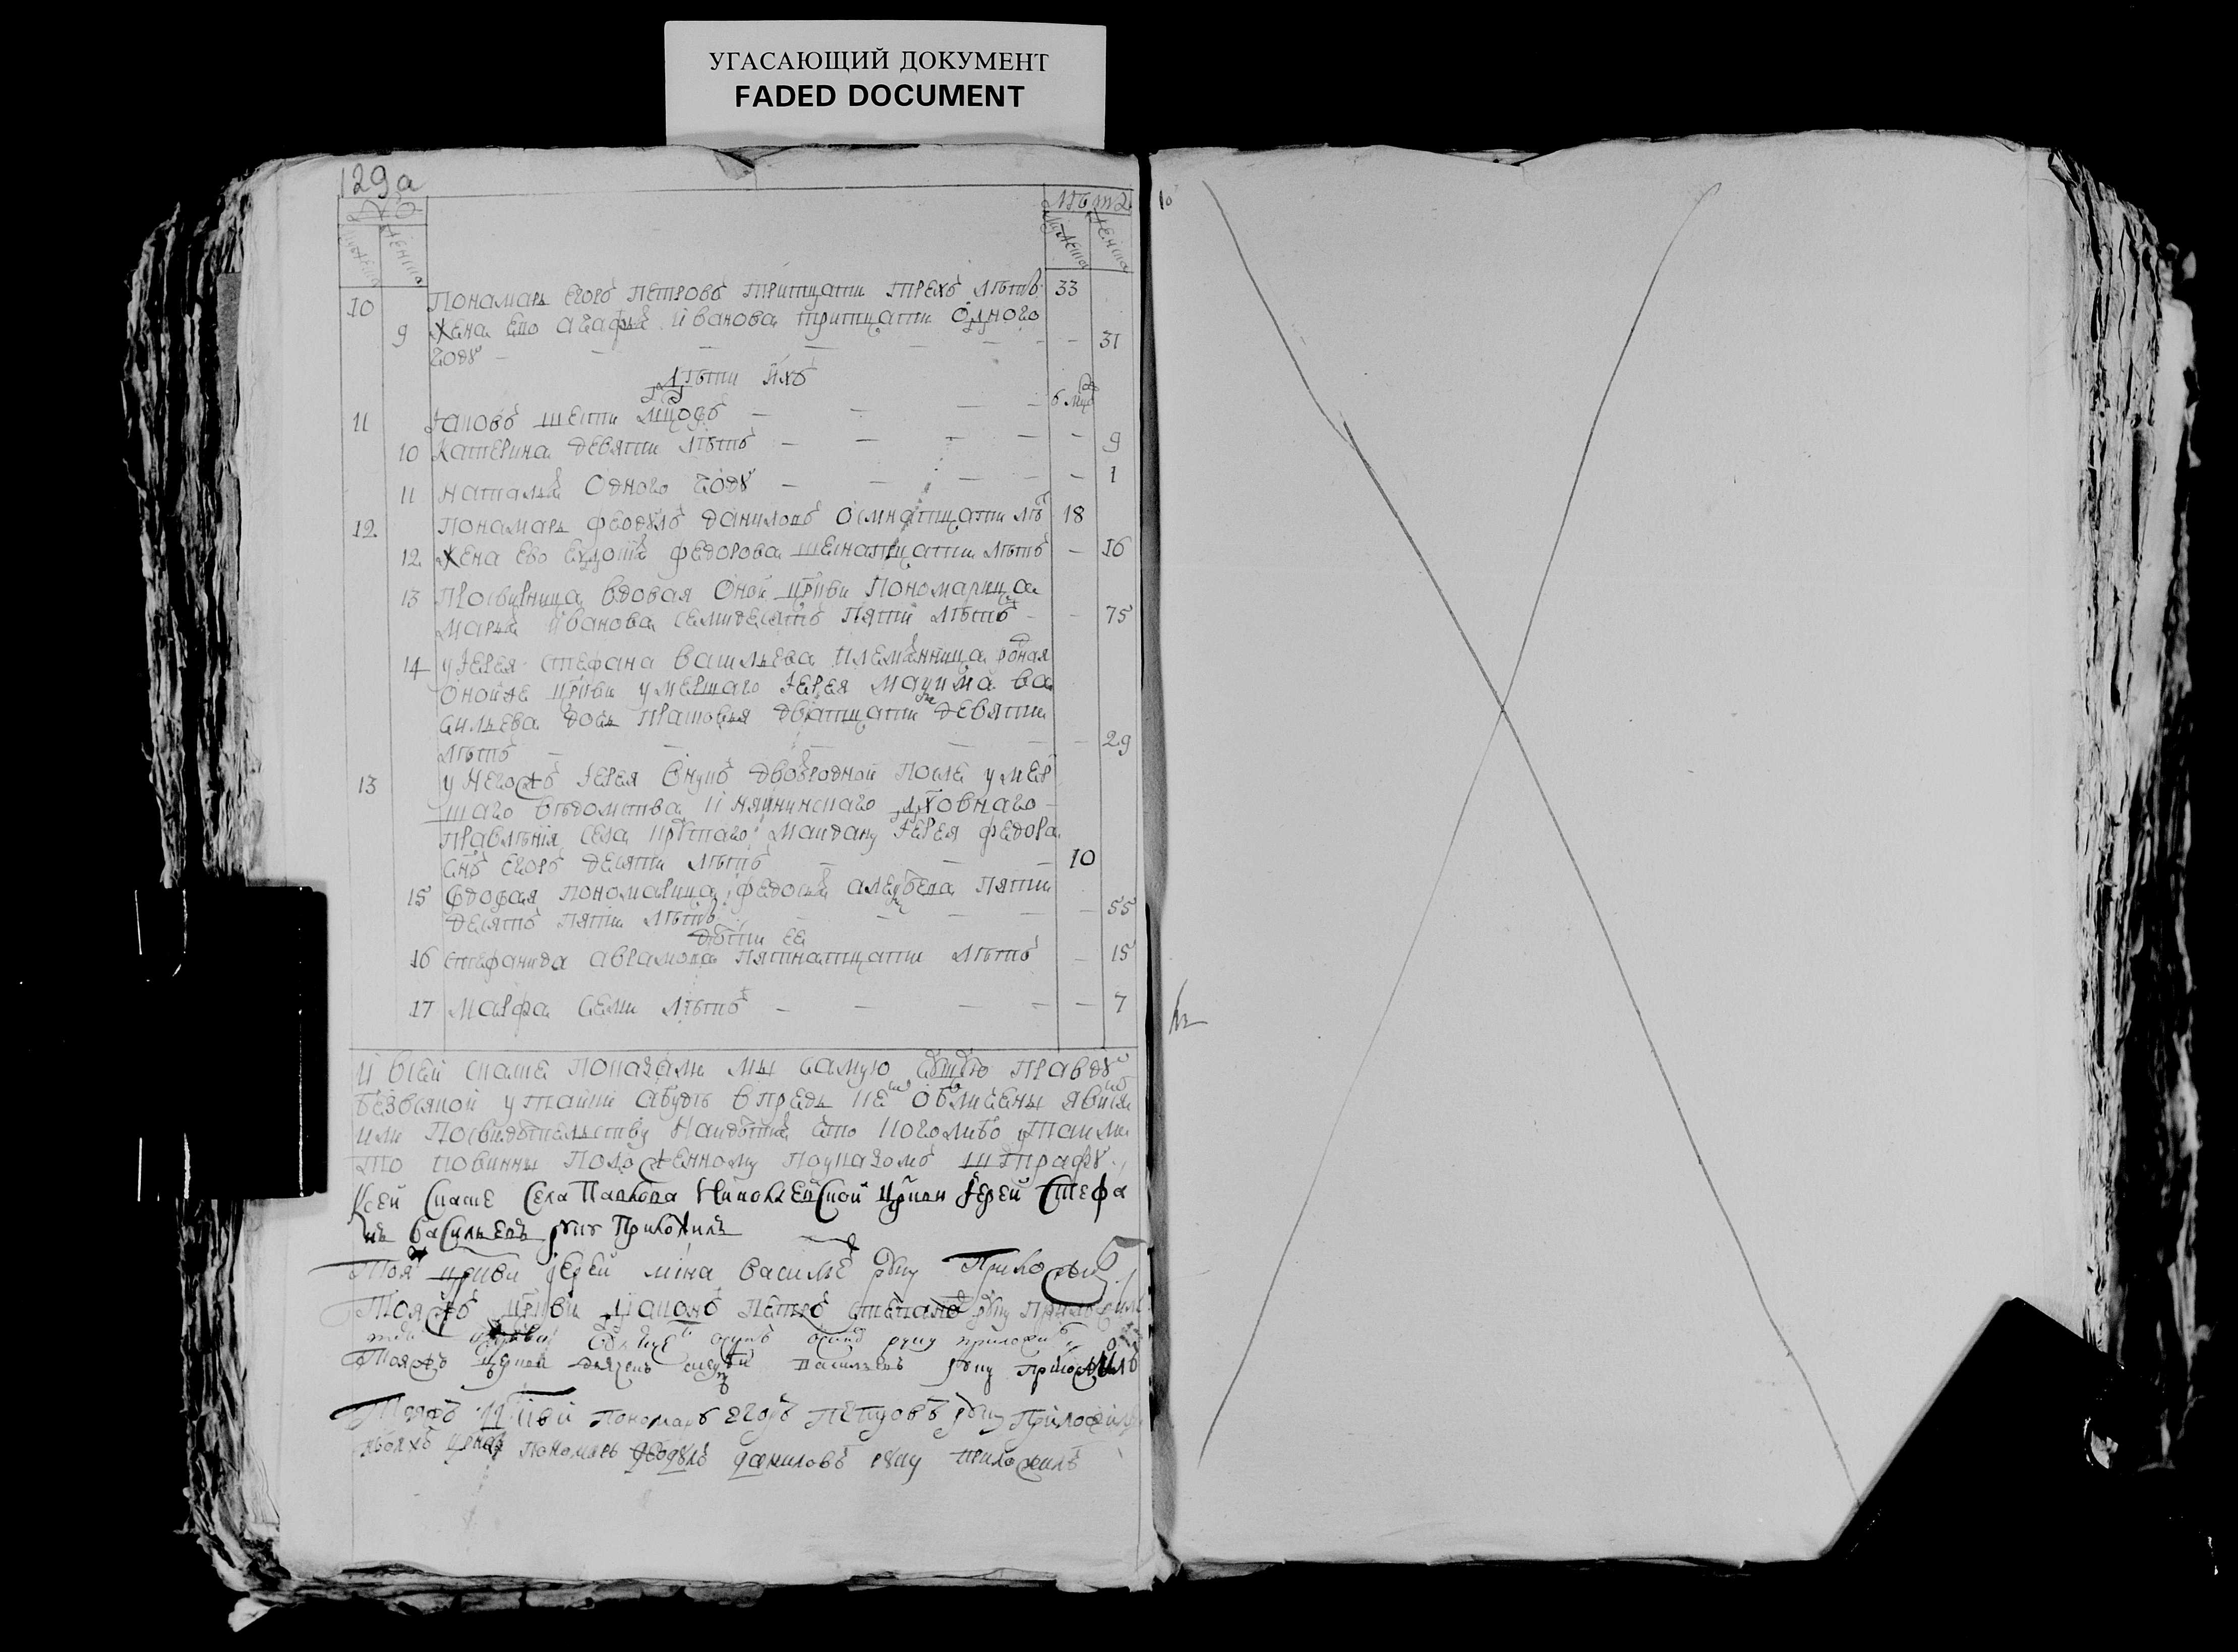 УГАСАЮЩИЙ ДОКУМЕНТ
FADED DOCUMENT
129а
лѣта
10 Пономарь Егоръ Петровъ тритцати трехъ лѣтъ 33
9 Жена ево агафья иванова тритцати одного
году 31
дѣти ихъ
11 Яковъ шести мцовъ 6 мцо
10 Катерина девяти лѣтъ 9
11 наталья одного году 1
12 Пономарь феодулъ даниловъ осмнатцати лѣ 18
12 Жена ево евдотья федорова шеснатцати лѣтъ 16
13 Просвирница вдовая оной цркви пономарица
марья иванова семидесятъ пяти лѣтъ 75
14 у иерея стефана васильева племянница родная
оной же цркви умершаго иерея максима ва
сильева дочь прасковья дватцати девяти
лѣтъ 29
13 у негожъ иерея внукъ двоюродной после умер
шаго вѣдомства духовнаго
правленія села майдану иерея федора
снъ егоръ десяти лѣтъ 10
15 вдовая пономарица федосья алексѣева пяти
десятъ пяти лѣтъ 55
дѣти ее
16 стефанида аврамова пятнатцати лѣтъ 15
17 марфа семи лѣтъ 7
и всей скаске показали мы самую сущую правду
безвсякой утайки абудѣ впредь кѣ обличены явимся
или посвидѣтельству найдѣтся что кого либо утаили
то повинны положенному поуказомъ штрафу
Ксей скаске села Николаевской цркви иерей Стефа
нъ Васильевъ руку приложилъ
Тоя цркви иерей мина василье руку приложи
Тояжъ цркви диаконъ петръ степановъ руку приложил
руку приложи
Тояжъ цркви дьячекъ васильевъ руку приложилъ
Тояжъ цркви пономарь егоръ петровъ руку приложилъ
тояжъ цркви пономарь феодулъ даниловъ руку приложилъ